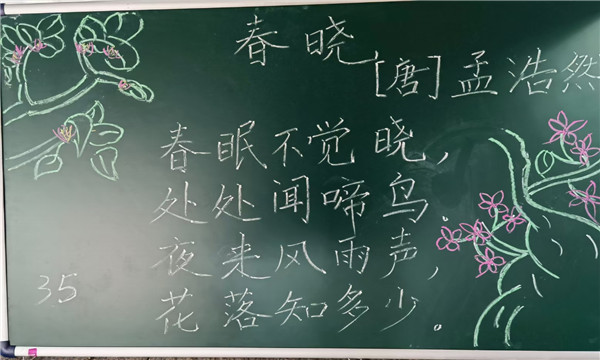 春晓
[唐]孟浩然
春眠不觉晓，
处处闻啼鸟。
夜来风雨声，
花落知多少。
35